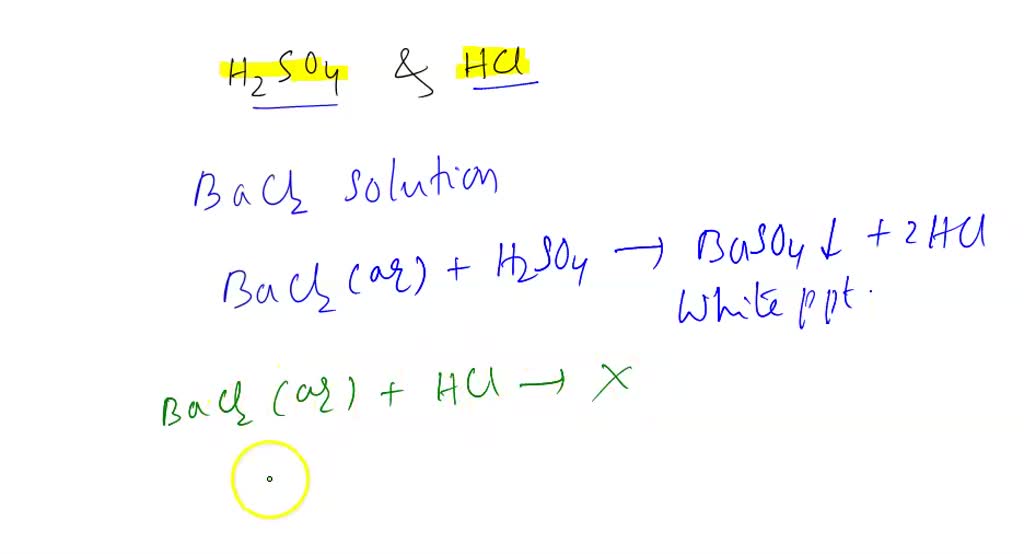 H2SO4 & HCl
BaCl2 solution
BaCl2 (aq) + H2SO4 → BaSO4 ↓ + 2HCl
White ppt.
BaCl2 (aq) + HCl → X